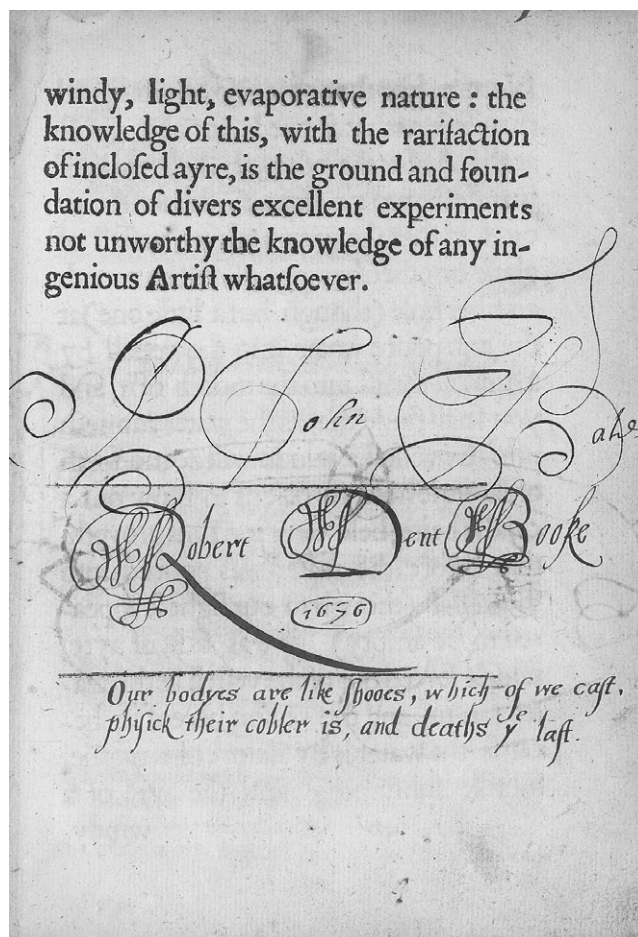 windy, light, evaporative nature : the
knowledge of this, with the rarifaction
of incloſed ayre, is the ground and foun-
dation of divers excellent experiments
not unworthy the knowledge of any in-
genious Artiſt whatſoever.
John
Robert Dent Booke
1656
Our bodyes are like ſhooes, which of we caſt,
phiſick their cobler is, and deaths yᵉ laſt.